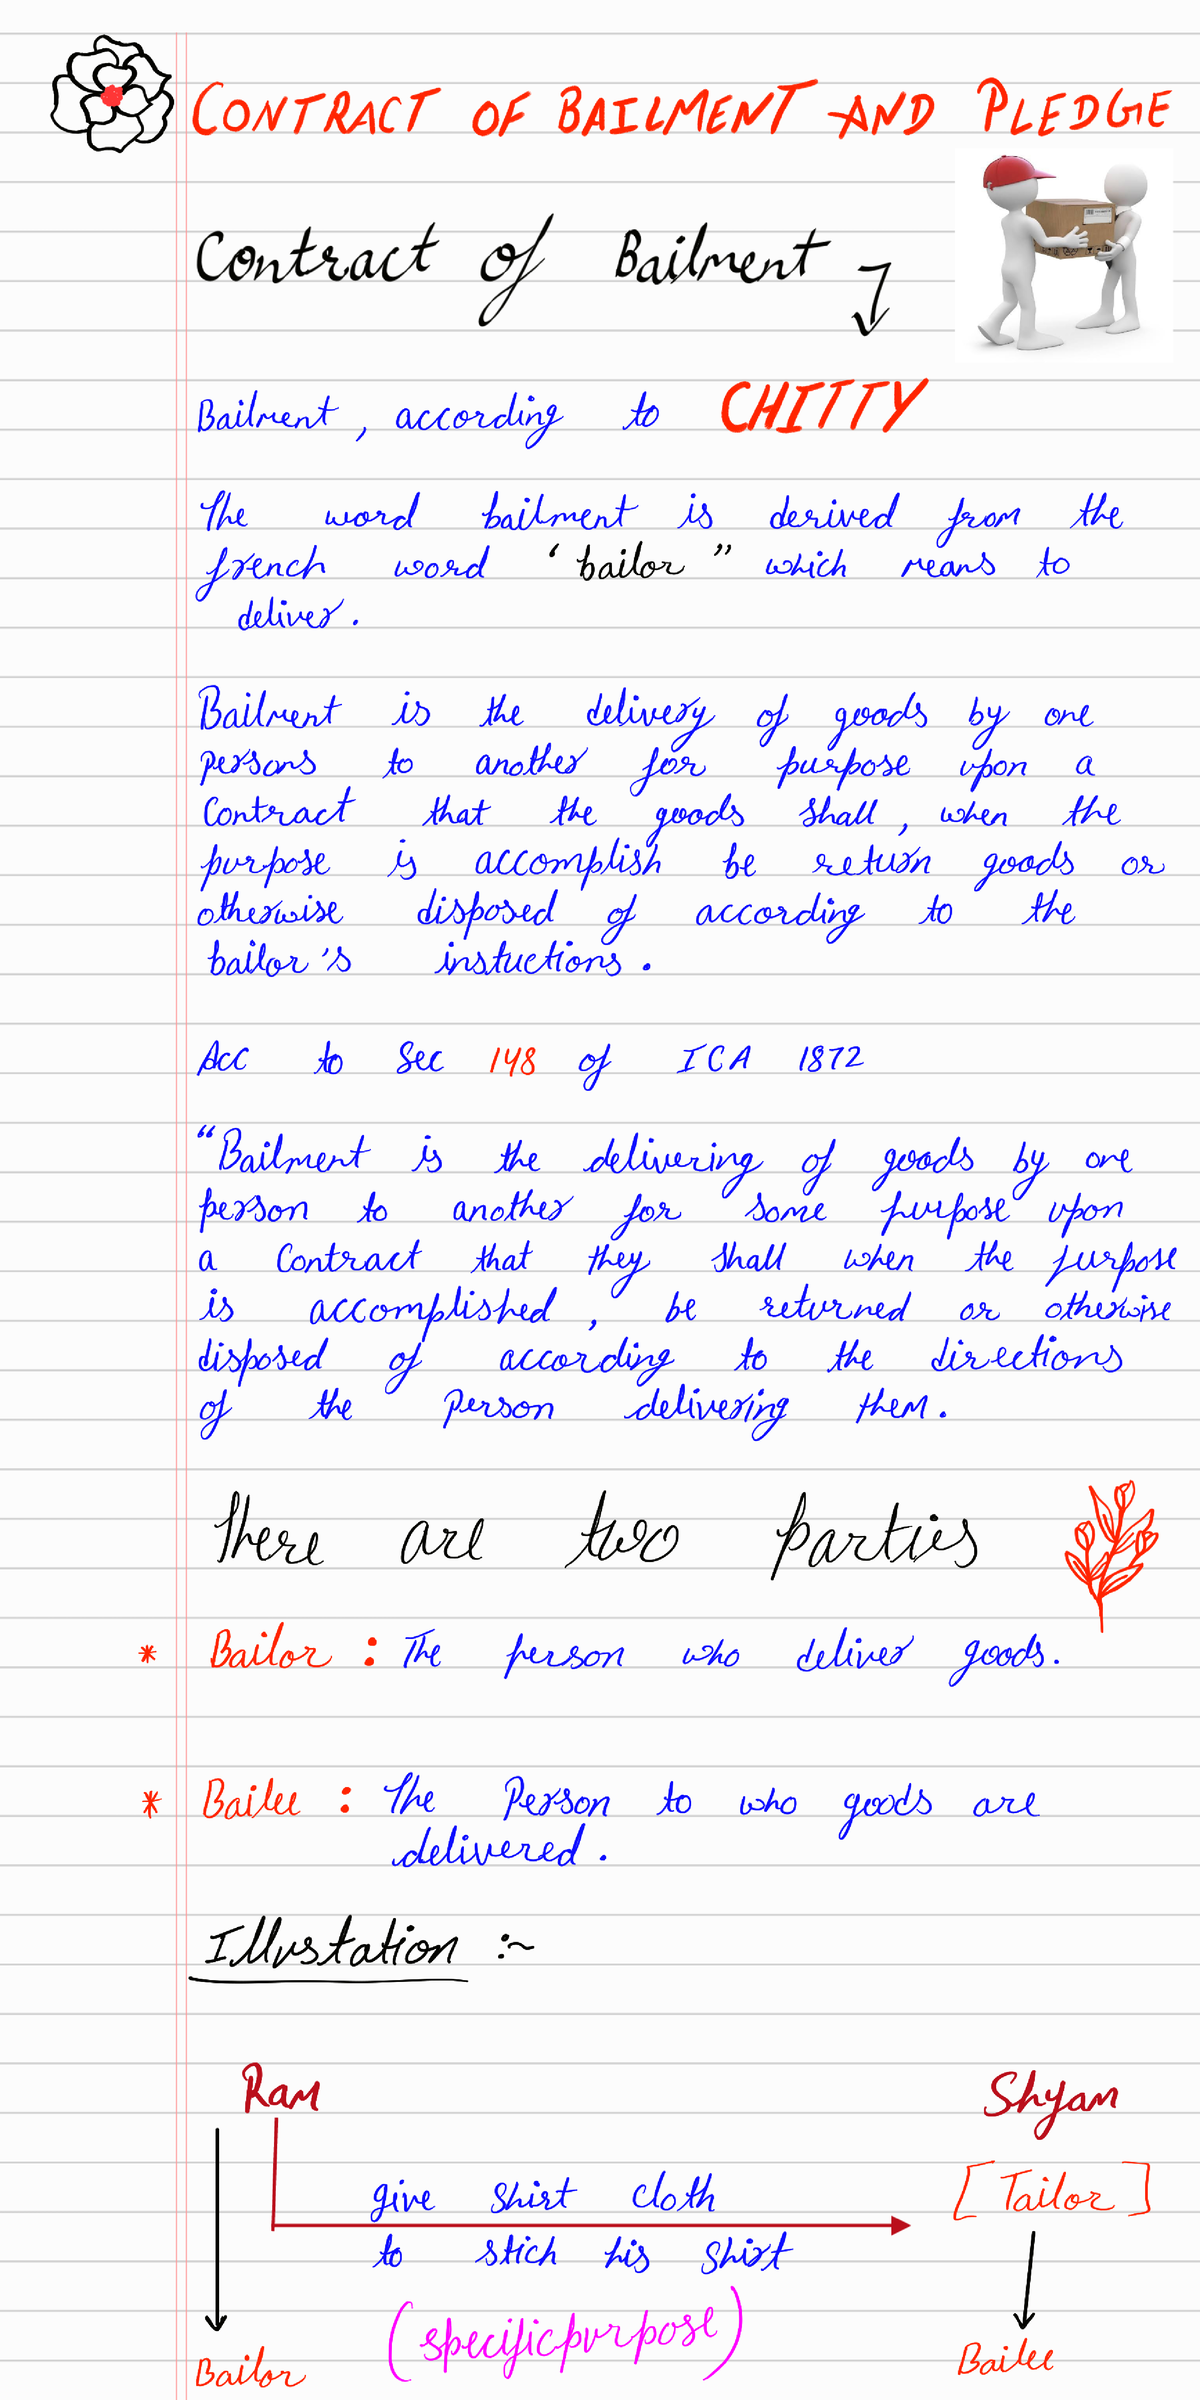 CONTRACT OF BAILMENT AND PLEDGE
Contract of Bailment
Bailment, according to CHITTY
The word bailment is derived from the
french word ‘bailor” which means to
deliver.
Bailment is the delivery of goods by one
persons to another for purpose upon a
Contract that the goods shall, when the
purpose is accomplish be return goods or
otherwise disposed of according to the
bailor's instuctions.
Acc to Sec 148 of ICA 1872
“Bailment is the delivering of goods by one
person to another for some purpose upon
a Contract that they shall when the purpose
is accomplished, be returned or otherwise
disposed of according to the directions
of the Person delivering them.
There are two parties
* Bailor : The person who deliver goods.
* Bailee : The Person to who goods are
delivered.
Illustation :~
Ram Shyam
give shirt cloth [Tailor]
to stich his shirt
(specificpurpose)
Bailor Bailee